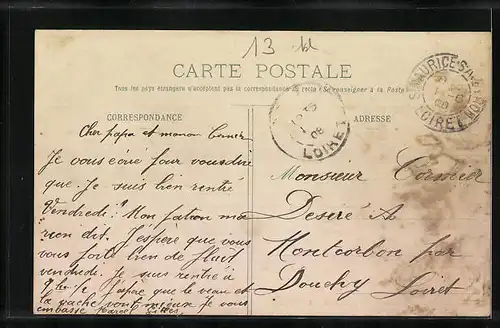 13
CARTE POSTALE
Tous les pays étrangers n'acceptent pas la correspondance au recto (Se renseigner à la Poste)
CORRESPONDANCE
ADRESSE
LOIRET
LOIRET
Cher papa et maman
Je vous écrie pour vous dire
que. Je suis bien rentré
Vendredi. Mon patron ma
rien dit. J'éspère que vous
vous
vendredi. Je suis rentré à
J'éspère que le veau et
la vache vont mieux Je vous
embasse
Monsieur Cormier
Deseré A
Montcorbon par
Douchy Loiret